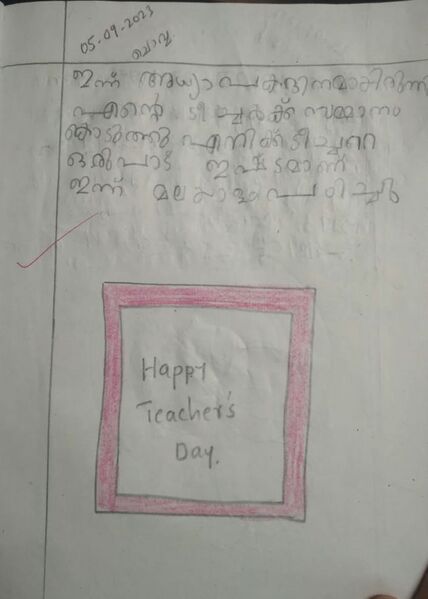 05-09-2023
ചൊവ്വ
ഇന്ന് അധ്യാപകദിനമാകിരുന്നു
എന്റെ ടീച്ചർക്ക് സമ്മാനം
കൊടുത്തു എനിക്ക് ടീച്ചറെ
ഒരുപാട് ഇഷ്ടമാണ്
ഇന്ന് മലയാളം പഠിച്ചു
Happy
Teacher's
Day.